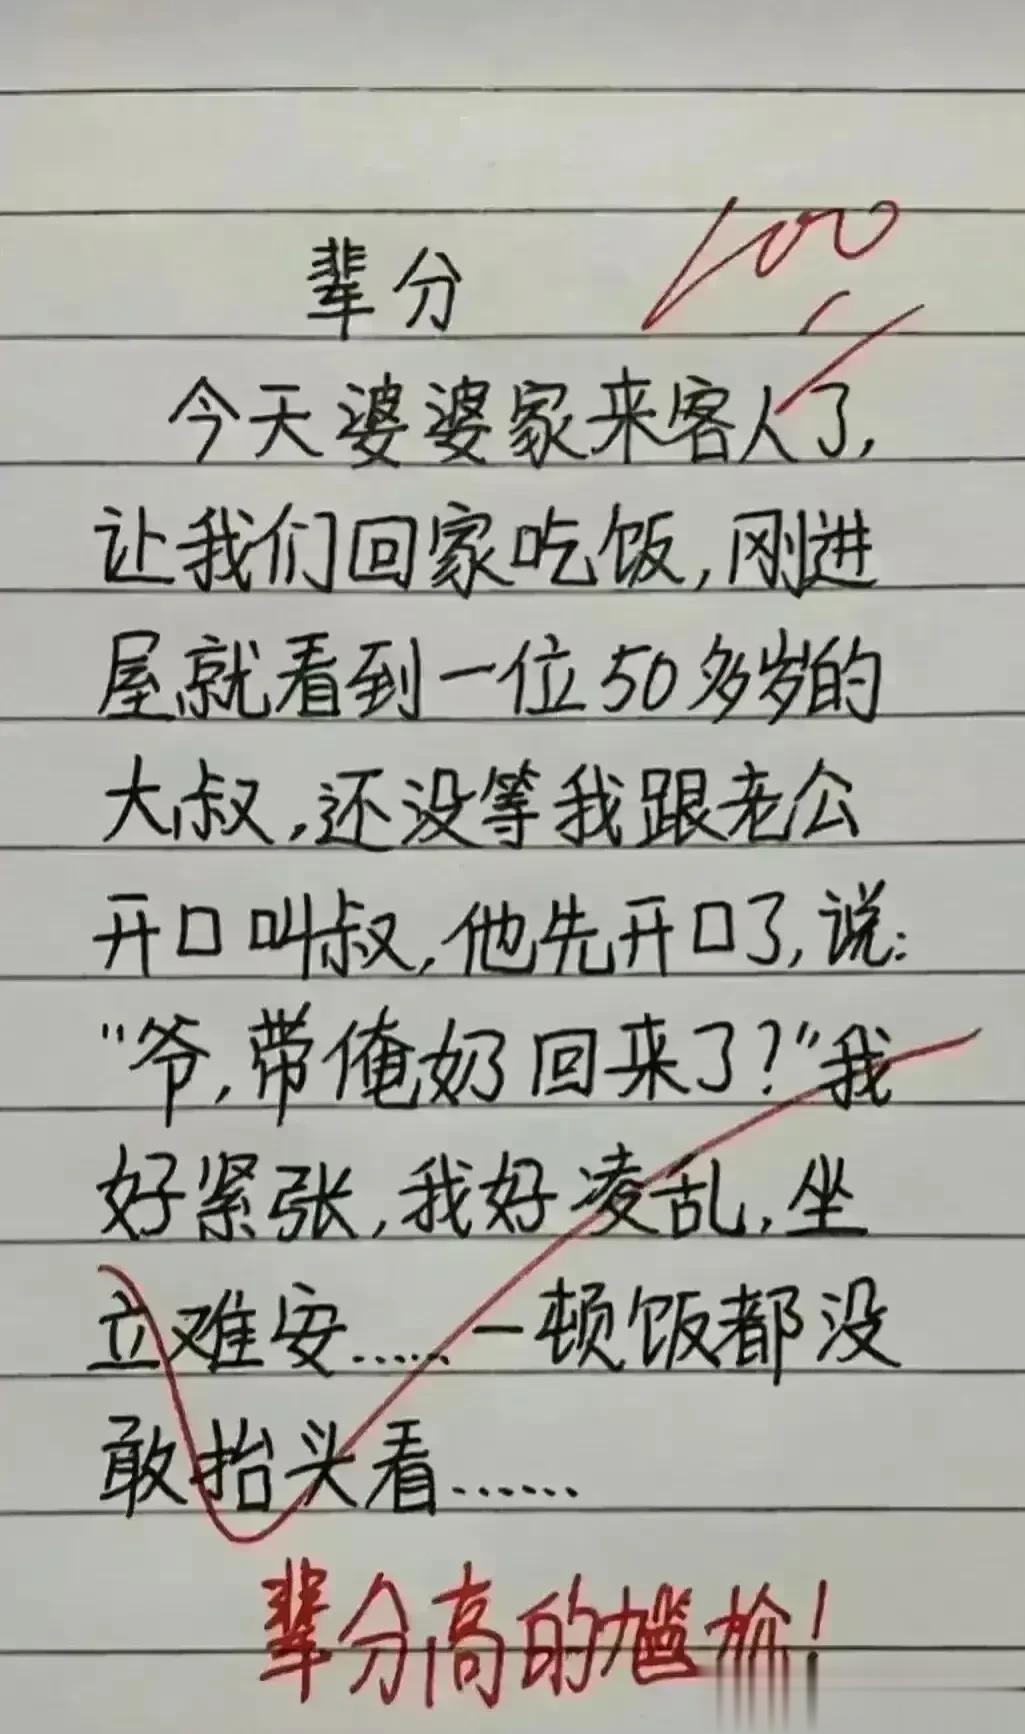 辈分
100
今天婆婆家来客人了,
让我们回家吃饭,刚进
屋就看到一位50多岁的
大叔,还没等我跟老公
开口叫叔,他先开口了,说:
"爷,带俺奶回来了?"我
好紧张,我好凌乱,坐
立难安......一顿饭都没
敢抬头看......
辈分高的尴尬!